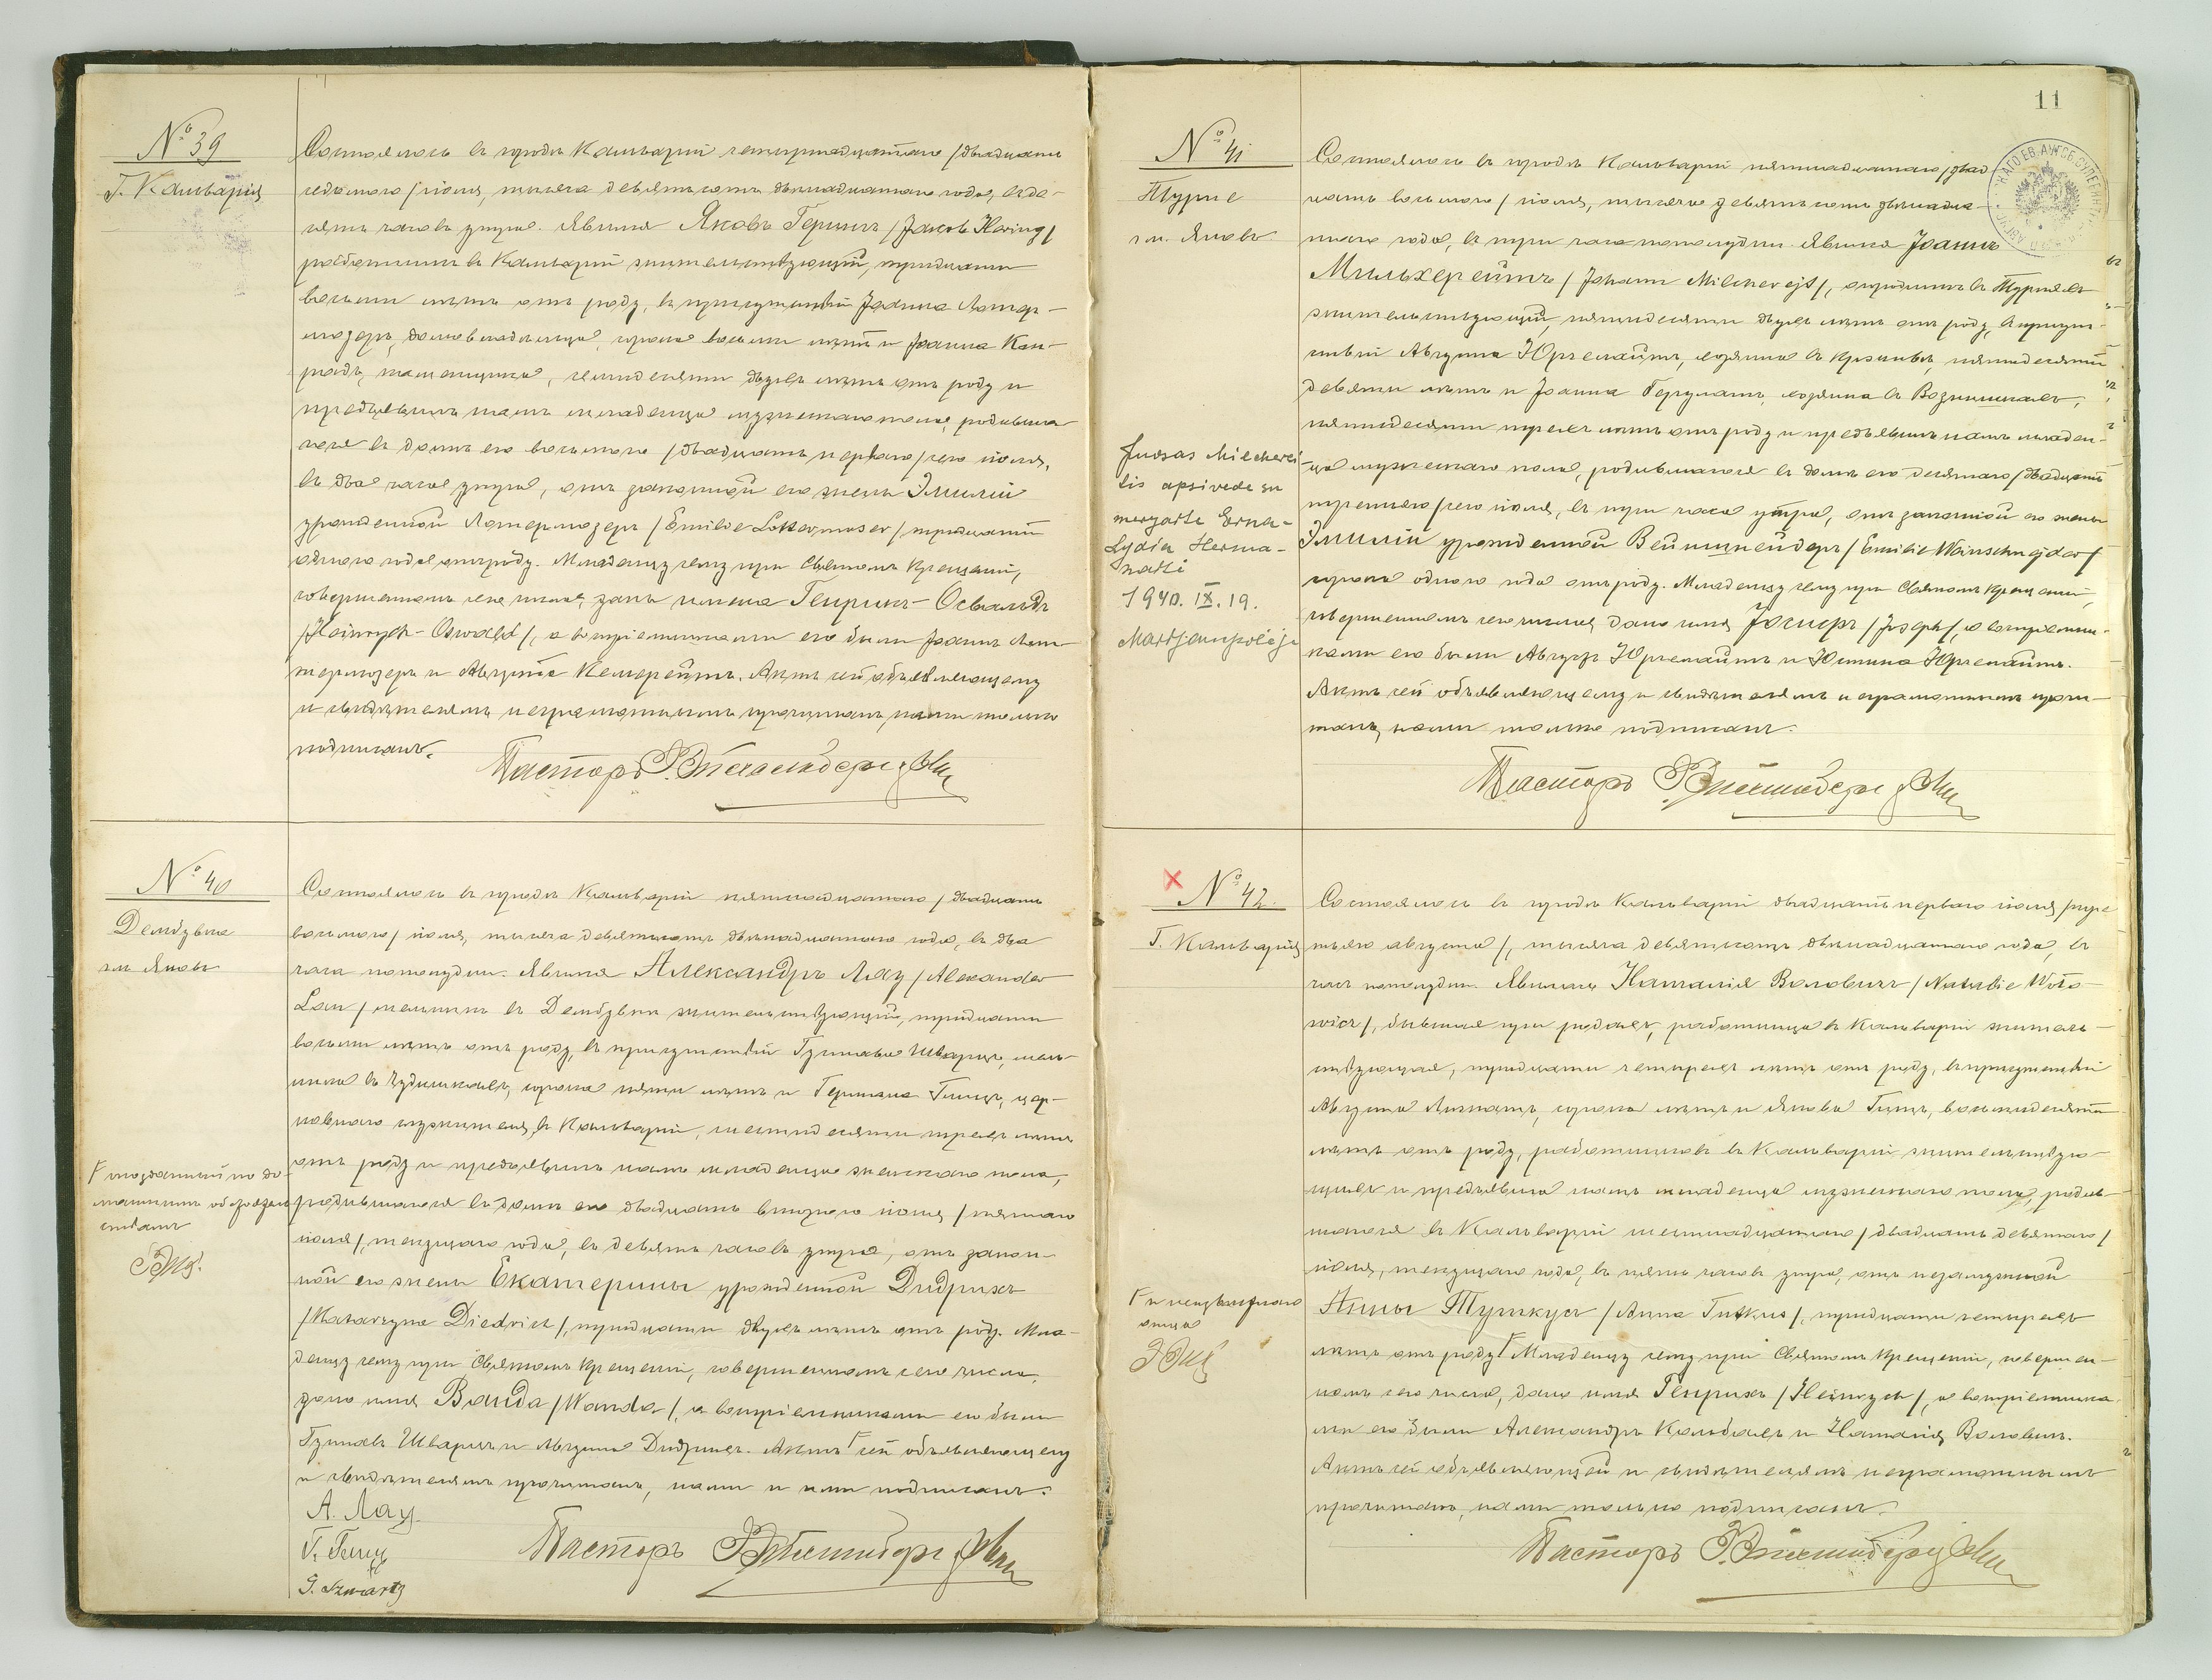 № 39
Г. Кальварія
Состоялось въ городѣ Кальваріи четырнадцатаго /двадцать
седьмого/ іюля, тысяча девятьсотъ двѣнадцатаго года, въ де-
сять часовъ утра. Явился Яковъ Герингъ /Jakob Hering/
работникъ въ Кальваріи жительствующій, тридцати
восьми лѣтъ отъ роду, въ присутствіи Іоанна Лотер-
мозеръ, домовладѣльца, сорока восьми лѣтъ и Іоанна Кон-
радъ, семидесяти двухъ лѣтъ отъ роду и
предъявилъ намъ младенца мужескаго пола, родивша-
гося въ домѣ его восьмого /двадцать перваго/ сего іюля,
въ два часа утра, отъ законной его жены Эмиліи
урожденной Лотермозеръ /Emilie Lottermoser/ тридцати
одного года отъ роду. Младенцу сему при Святомъ Крещеніи,
совершенномъ сего числа, даны имена Генрихъ-Освальдъ
/Heinrych-Oswald/, а воспріемниками его были Іоаннъ Лот-
термозеръ и Августа Кемерейтъ. Актъ сей объявляющему
и свидѣтелямъ неграмотнымъ прочитанъ, нами только
подписанъ.
Пасторъ
№ 40
Дембувка
гм. Яновъ
Состоялось въ городѣ Кальваріи пятнадцатаго /двадцать
восьмого/ іюля, тысяча девятьсотъ двѣнадцатаго года, въ два
часа пополудни. Явился Александръ Лау /Alexander
Lau/ мельникъ въ Дембувкѣ жительствующій, тридцати
восьми лѣтъ отъ роду, въ присутствіи Густава Шварцъ, мель-
ника въ сорока пяти лѣтъ и Германа Гинцъ, цер-
ковнаго служителя въ Кальваріи, шестидесяти трехъ лѣтъ
отъ роду и предъявилъ намъ младенца женскаго пола,
родившагося въ домѣ его двадцать второго іюня /пятаго
іюля/, текущаго года, въ девять часовъ утра, отъ закон-
ной его жены Екатерины урожденной Дидрихъ
/Katarzyna Diedrich/, тридцати двухъ лѣтъ отъ роду. Мла-
денцу сему при Святомъ Крещеніи, совершенномъ сего числа,
дано имя Ванда /Wanda/, а воспріемниками его были
Густавъ Шварцъ и Августа Дидрихъ. Актъ Г сей объявляющему
и свидѣтелямъ прочитанъ, нами и ими подписанъ.
Г опозданный по до-
машнимъ обстоятель-
ствамъ
А. Лау.
Г. Гинц
G. Szwartz
Пасторъ
11
№ 41
Турие
гм. Яновъ
Состоялось въ городѣ Кальваріи пятнадцатаго /двад-
цать восьмого/ іюля, тысяча девятьсотъ двѣнадца-
таго года, въ три часа пополудни. Явился Іоаннъ
Мильхерейтъ /Johann Milcherejt/, огородникъ въ Туріяхъ
жительствующій, пятидесяти двухъ лѣтъ отъ роду, въ присут-
ствіи Августа Юргелайтъ, хозяина въ пятидесяти
девяти лѣтъ и Іоанна Герулатъ, хозяина въ Вознишкахъ,
пятидесяти трехъ лѣтъ отъ роду и предъявилъ намъ младен-
ца мужескаго пола, родившагося въ домѣ его десятаго /двадцать
третьяго/ сего іюля, въ три часа утра, отъ законной его жены
Эмиліи урожденной Вейншнейдеръ /Emilie Wainschnejder/
сорока одного года отъ роду. Младенцу сему при Святомъ Крещеніи,
совершенномъ сего числа, дано имя Іосифъ /Joseph/, а воспріемни-
ками его были Августъ Юргелайтъ и Юлина Юргелайтъ.
Актъ сей объявляющему и свидѣтелямъ неграмотнымъ прочи-
танъ, нами только подписанъ.
Juosas Milcherei-
tis apsivedė su
mergaite Erna-
Lydia Herma-
naite
1940. IX. 19.
Marijampolėje
Пасторъ
№ 42.
Г. Кальварія
Состоялось въ городѣ Кальваріи двадцать перваго іюля /тре-
тьяго августа/, тысяча девятьсотъ двѣнадцатаго года, въ
часъ пополудни. Явилась Наталія Воловичъ /Natalie Woło-
wicz/, бывшая при родахъ, работница въ Кальваріи житель-
ствующая, тридцати четырехъ лѣтъ отъ роду, въ присутствіи
Августа сорока лѣтъ и Якова Гинцъ, восьмидесяти
лѣтъ отъ роду, работниковъ въ Кальваріи жительствую-
щихъ и предъявила намъ младенца мужескаго пола, родив-
шагося въ Кальваріи шестнадцатаго /двадцать девятаго/
іюля, текущаго года, въ пять часовъ утра, отъ незамужней
Анны Туткусъ /Anna Tutkus/, тридцати четырехъ
лѣтъ отъ роду Г Младенцу сему при Святомъ Крещеніи, совершен-
номъ сего числа, дано имя Генрихъ /Heinrych/, а воспріемника-
ми его были Александръ Кальбахъ и Наталія Воловичъ.
Актъ сей объявляющей и свидѣтелямъ неграмотнымъ
прочитанъ, нами только подписанъ.
Г и неизвѣстнаго
отца
Пасторъ